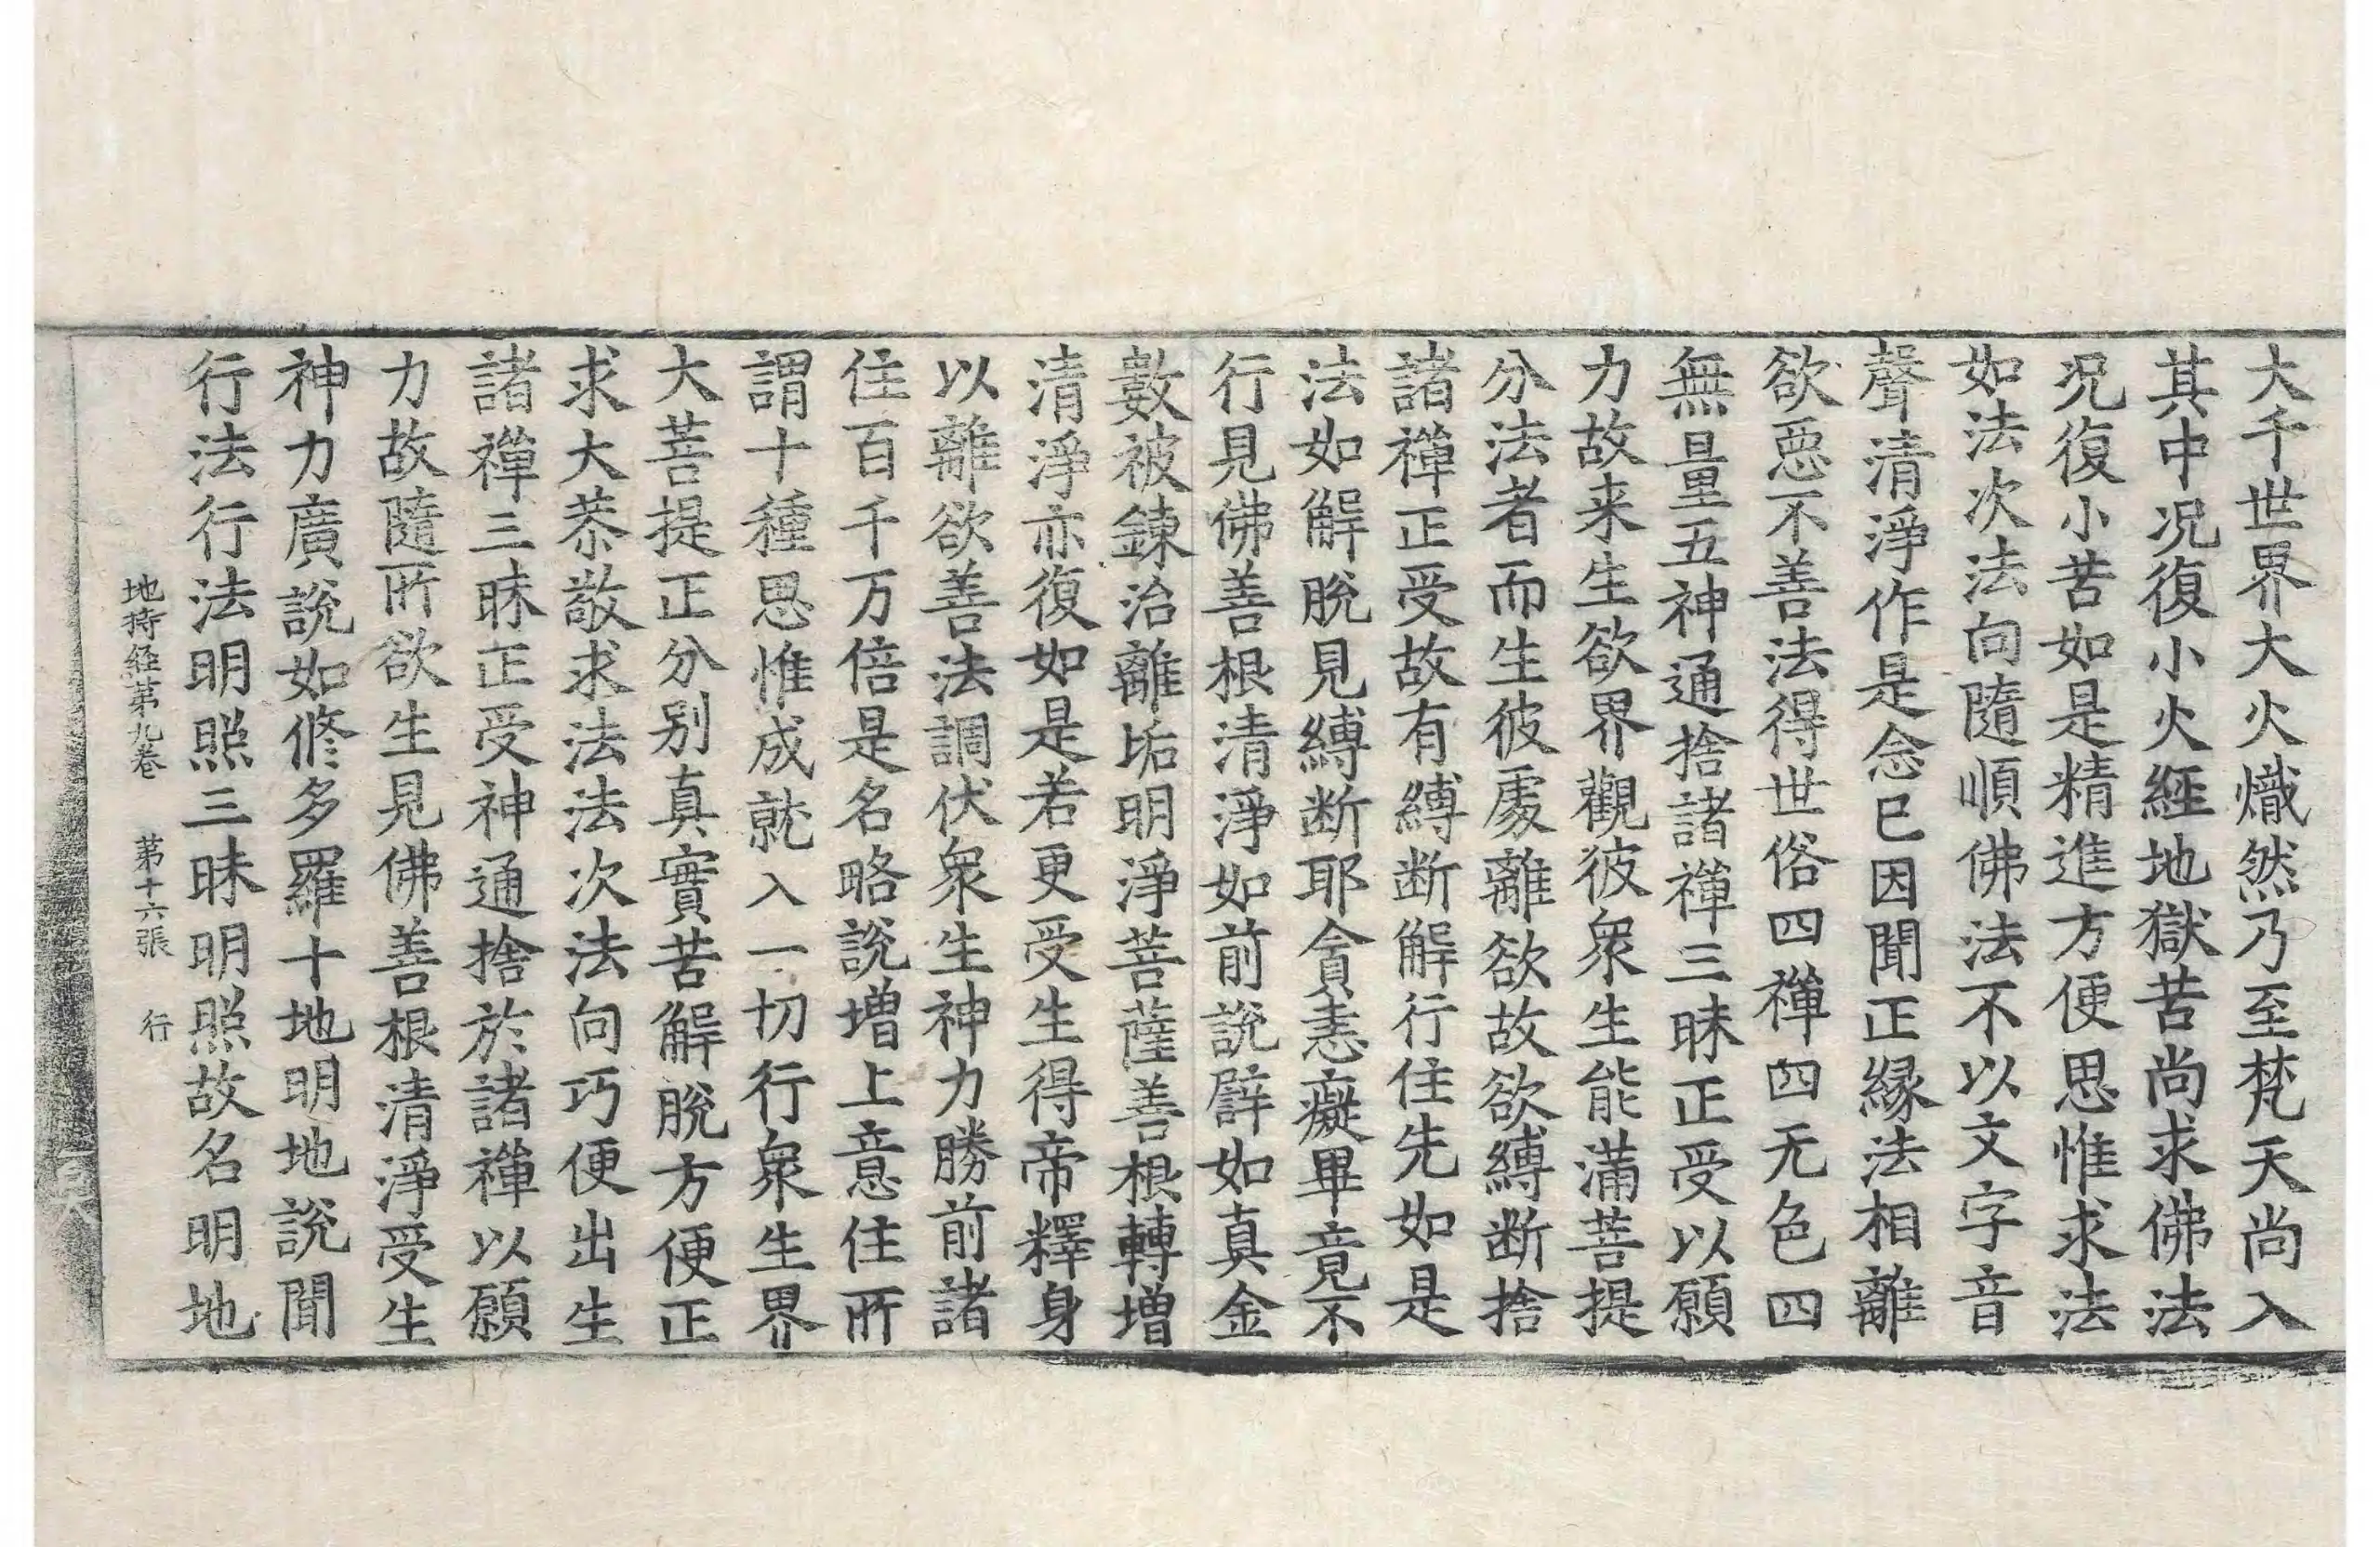 大千世界大火熾然乃至梵天尚入
其中况復小火經地獄苦尚求佛法
况復小苦如是精進方便思惟求法
如法次法向隨順佛法不以文字音
聲清淨作是念已因聞正緣法相離
欲惡不善法得世俗四禪四无色四
無量五神通捨諸禪三昧正受以願
力故来生欲界觀彼衆生能滿菩提
分法者而生彼處離欲故欲縛断捨
諸禪正受故有縛断解行住先如是
法如解脫見縛断耶貪恚癡畢竟不
行見佛善根清淨如前說辟如真金
數被鍊治離垢明淨菩薩善根轉增
清淨亦復如是若更受生得帝釋身
以離欲善法調伏衆生神力勝前諸
住百千万倍是名略說增上意住所
謂十種思惟成就入一切行衆生界
大菩提正分别真實苦解脫方便正
求大恭敬求法法次法向巧便出生
諸禪三昧正受神通捨於諸禪以願
力故隨所欲生見佛善根清淨受生
神力廣說如修多羅十地明地說聞
行法行法明照三昧明照故名明地
地持経苐九卷 苐十六張 行